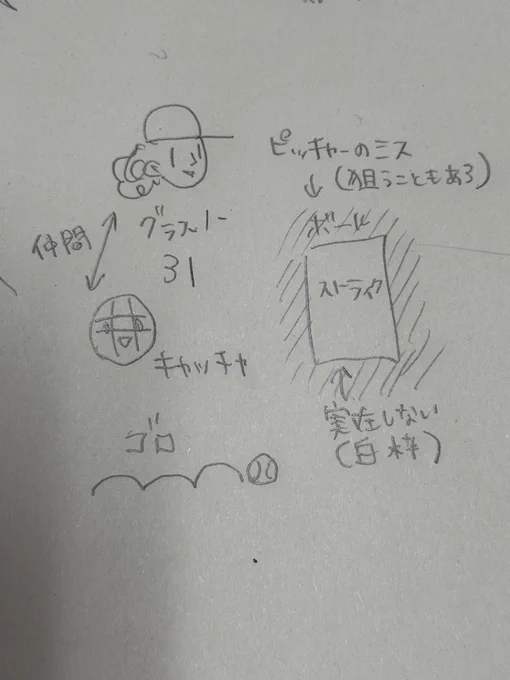 ピッチャーのミス
(狙うこともある)
仲間
グラスノー
31
ボール
ストライク
キャッチャ
実在しない
(白枠)
ゴロ